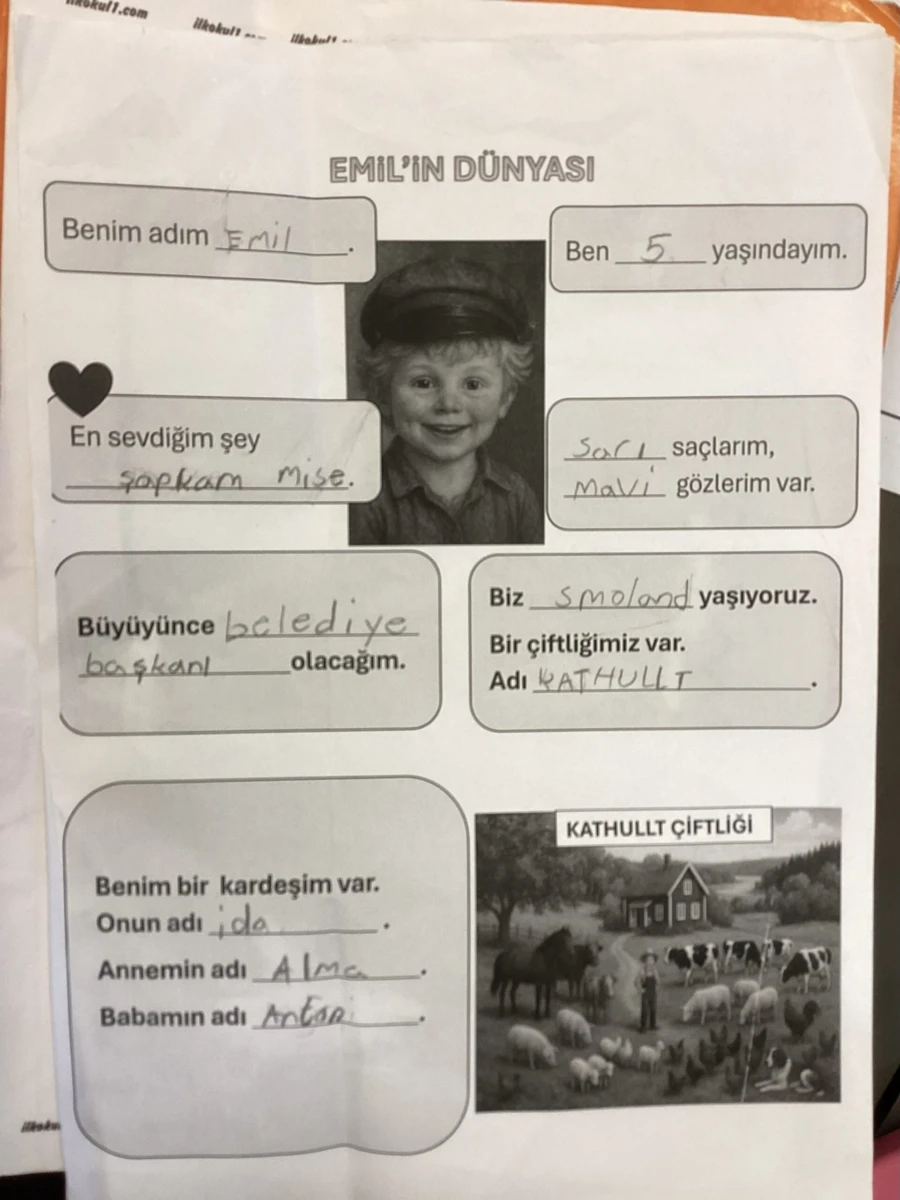 ilkokul1.com
ilkokul1
EMİL'İN DÜNYASI
Benim adım Emil.
Ben 5 yaşındayım.
En sevdiğim şey
şapkam Mişe.
Sarı saçlarım,
Mavi gözlerim var.
Büyüyünce belediye
başkanı olacağım.
Biz smoland yaşıyoruz.
Bir çiftliğimiz var.
Adı KATHULLT.
Benim bir kardeşim var.
Onun adı ida.
Annemin adı Alma.
Babamın adı
KATHULLT ÇİFTLİĞİ